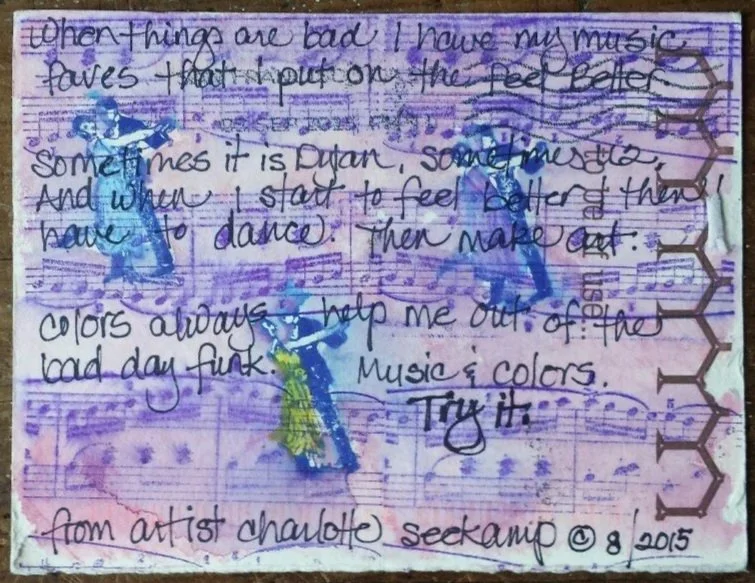 When things are bad I have my music
faves that I put on the feel Better
Sometimes it is Dylan, sometimes U2,
And when I start to feel better I then
have to dance. Then make art.
colors always help me out of the
bad day funk. Music & colors.
Try it.
from artist charlotte Seekamp © 8/2015
use...